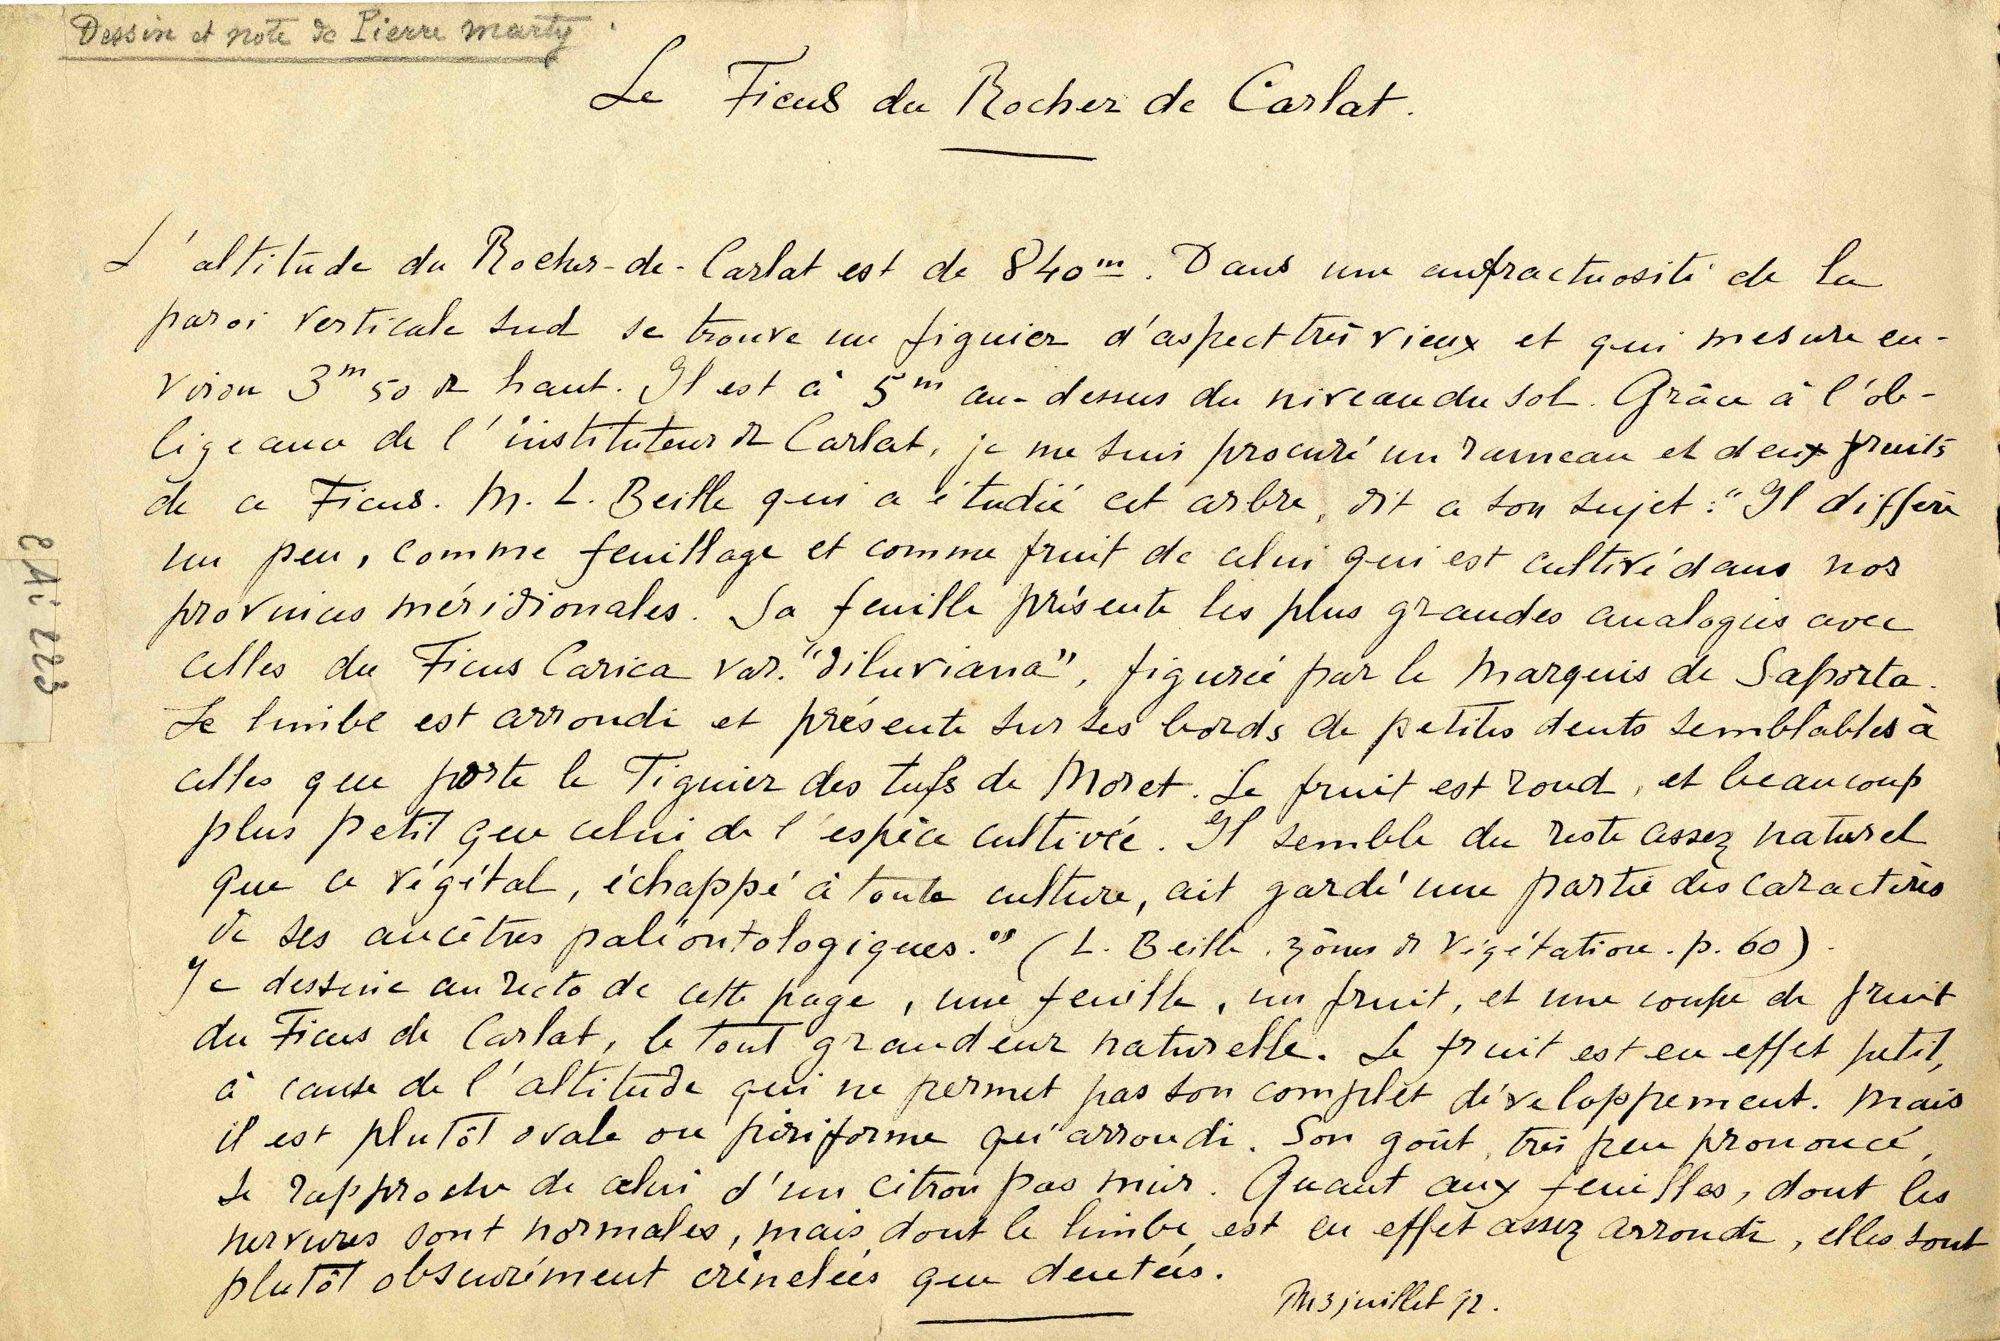 Dessin et note de Pierre Marty.
Le Ficus du Rocher de Carlat.
L'altitude du Rocher-de-Carlat est de 840m. Dans une anfractuosité de la
paroi verticale sud se trouve un figuier d'aspect très vieux et qui mesure en-
viron 3m50 de haut. Il est à 5m au-dessus du niveau du sol. Grâce à l'ob-
ligeance de l'instituteur de Carlat, je me suis procuré un rameau et deux fruits
de ce Ficus. M. L. Beille qui a étudié cet arbre, dit a son sujet : "Il diffère
un peu, comme feuillage et comme fruit de celui qui est cultivé dans nos
provinces méridionales. Sa feuille présente les plus grandes analogies avec
celles du Ficus Carica var. "diluviana", figurée par le Marquis de Saporta.
Le limbe est arrondi et présente sur ses bords de petites dents semblables à
celles que porte le Figuier des tufs de Moret. Le fruit est rond, et beaucoup
plus petit que celui de l'espèce cultivée. Il semble du reste assez naturel
que ce végétal, échappé à toute culture, ait gardé une partie des caractères
de ses ancêtres paléontologiques." (L. Beille. zônes de végétation. p. 60).
Je dessine au recto de cette page, une feuille, un fruit, et une coupe de fruit
du Ficus de Carlat, le tout grandeur naturelle. Le fruit est en effet petit,
à cause de l'altitude qui ne permet pas son complet développement. Mais
il est plutôt ovale ou piriforme qu'arrondi. Son goût, très peu prononcé,
se rapproche de celui d'un citron pas mûr. Quant aux feuilles, dont les
nervures sont normales, mais dont le limbe est en effet assez arrondi, elles sont
plutôt obscurément crénelées que dentées.
3 juillet 92.
2 Fi 223